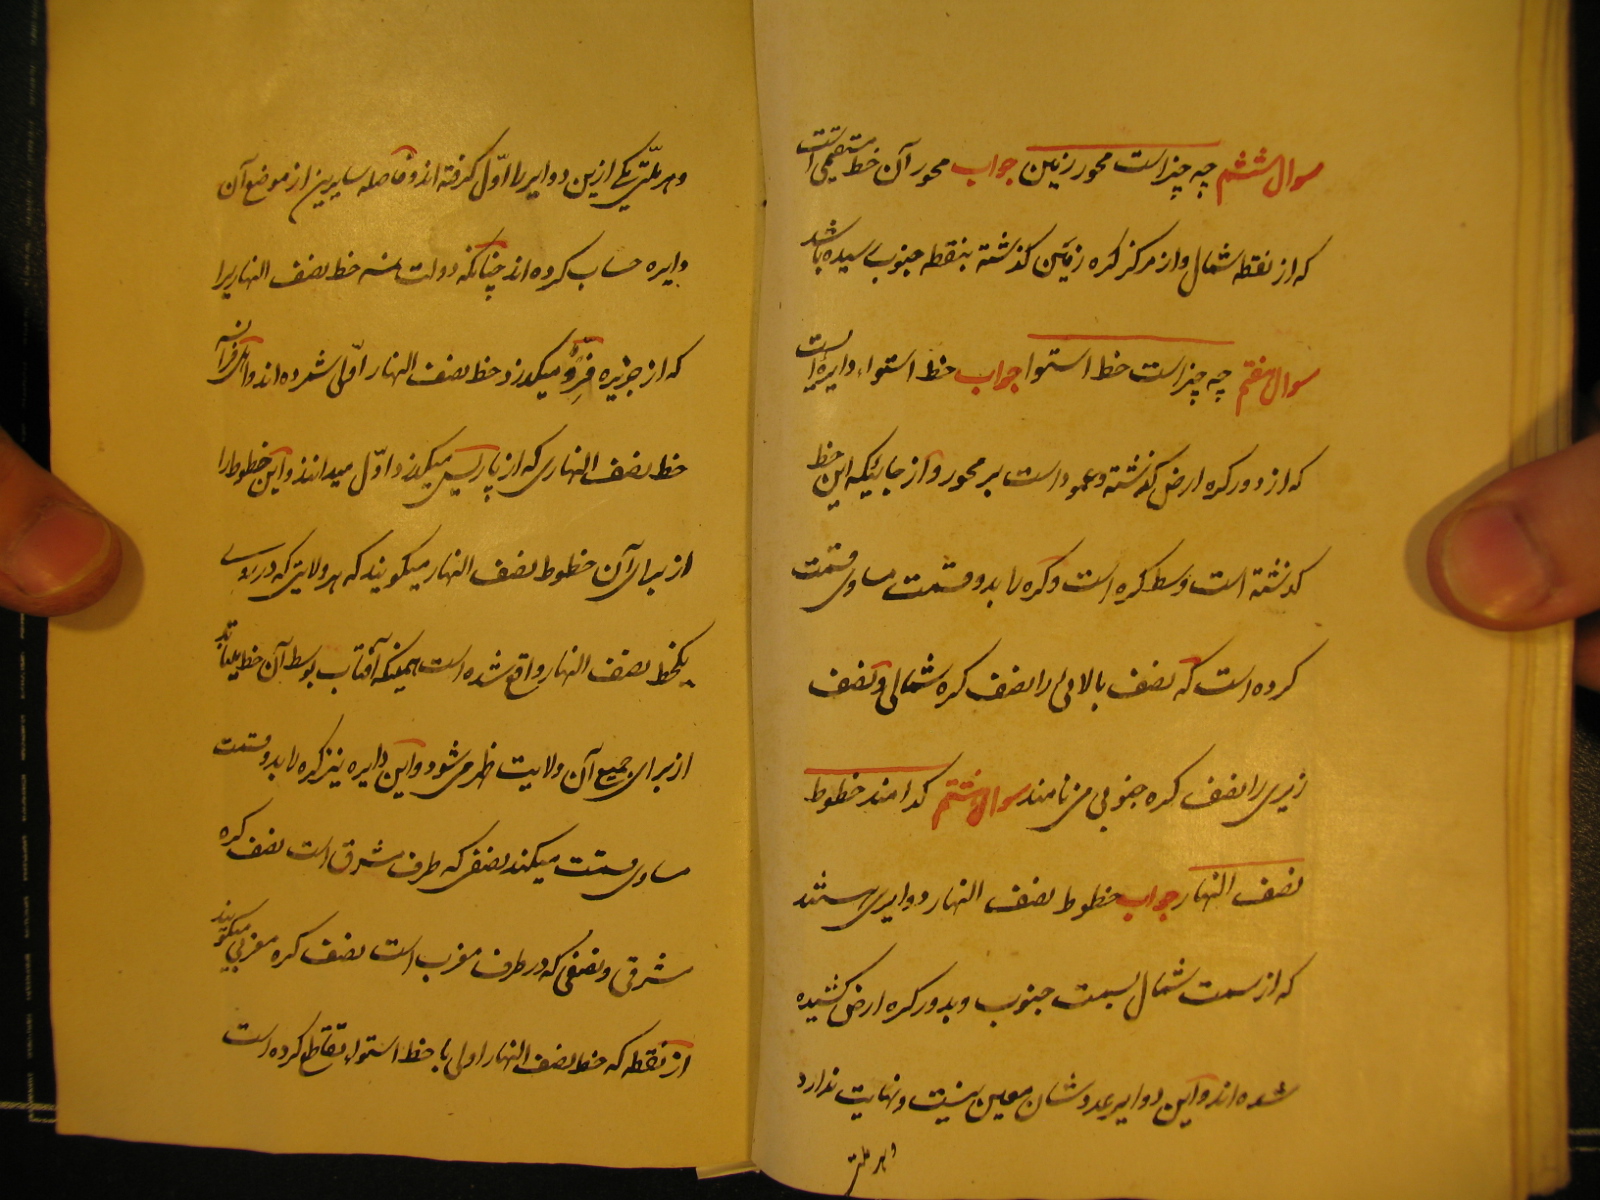 سوال ششم چه چیز است محور زمین جواب محور آن خط مستقیمی است
که از نقطه شمال و از مرکز کره زمین گذشته بنقطه جنوب رسیده باشد
سوال هفتم چه چیز است خط استوا جواب خط استواء دایرهٔ است
که از دور کره ارض گذشته و عمود است بر محور و از جائیکه این خط
گذشته است وسط کره است و کره را بدو قسمت مساوی قسمت
کرده است که نصف بالائی را نصف کره شمالی و نصف
زیری را نصف کره جنوبی می نامند سوال هشتم کدامند خطوط
نصف النهار جواب خطوط نصف النهار دوایری هستند
که از سمت شمال بسمت جنوب و بدور کره ارض کشیده
شده اند و این دوایر عددشان معین نیست و نهایت ندارد
و هر ملتی
و هر ملّتی یکی ازین دوایر را اوّل گرفته اند و فاصله سایرین از موضع آن
دایره حساب کرده اند چنانکه دولت نمسه خط نصف النهاریرا
که از جزیره فِرّو میگذرد خط نصف النهار اوّلی شمرده اند و اهل فرانسه
خط نصف النهاری که از پاریس میگذرد اوّل میدانند و این خطوط را
از برای آن خطوط نصف النهار میگویند که هر ولایتی که در روی
یکخط نصف النهار واقع شده است همینکه آفتاب بوسط آن خط میتابد
از برای جمیع آن ولایت ظهر می شود و این دایره نیز کره را بدو قسمت
مساوی قسمت میکند نصفی که طرف مشرق است نصف کره
شرقی و نصفی که در طرف مغرب است نصف کره مغربی میگویند
از نقطه که خط نصف النهار اولی با خط استواء تقاطع کرده است